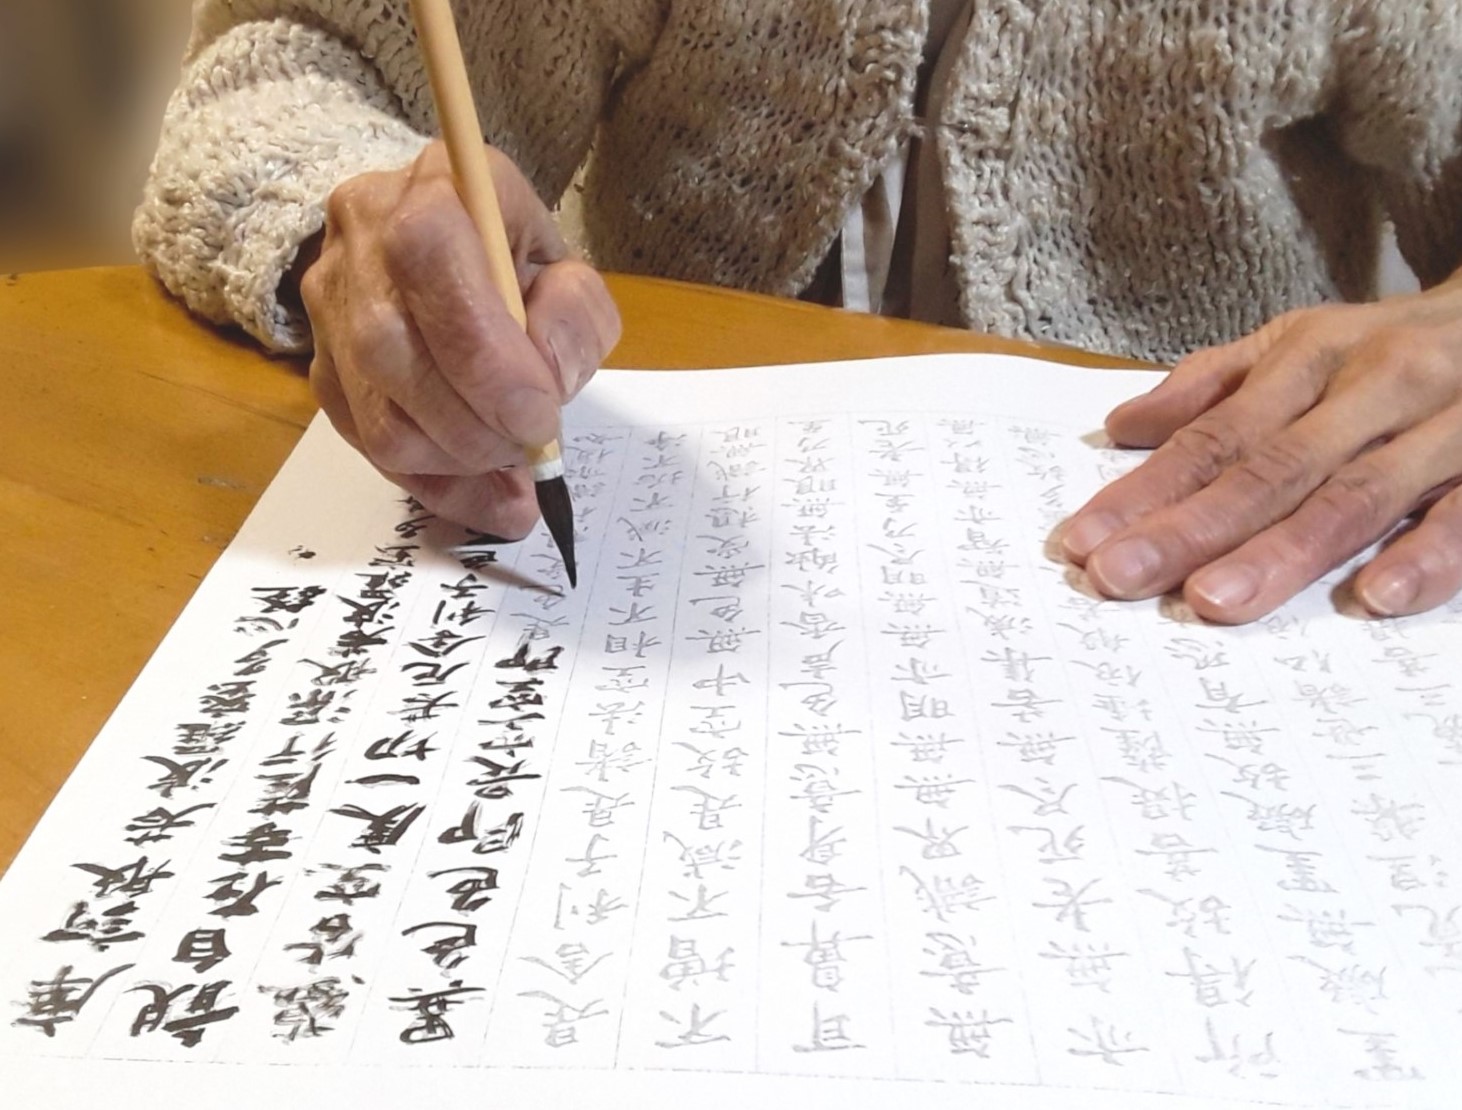 摩訶般若波羅蜜多心経
観自在菩薩行深般若波羅蜜多
蘊皆空度一切苦厄舎利子色
異色色即是空空即是色
是舎利子是諸法空相不生不滅不垢不浄
不増不減是故空中無色無受想行識無眼
耳鼻舌身意無色声香味触法無眼界乃至
無意識界無無明亦無無明尽乃至無老死
亦無老死尽無苦集滅道無智亦無得以無
所得故菩提薩埵依般若
罣礙無罣礙故無有恐
究竟涅槃三世諸仏